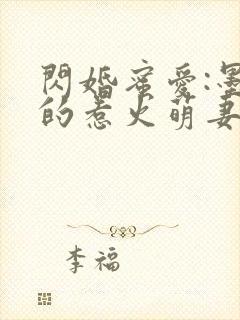 閃婚蜜愛:墨
的惹火萌妻
李福